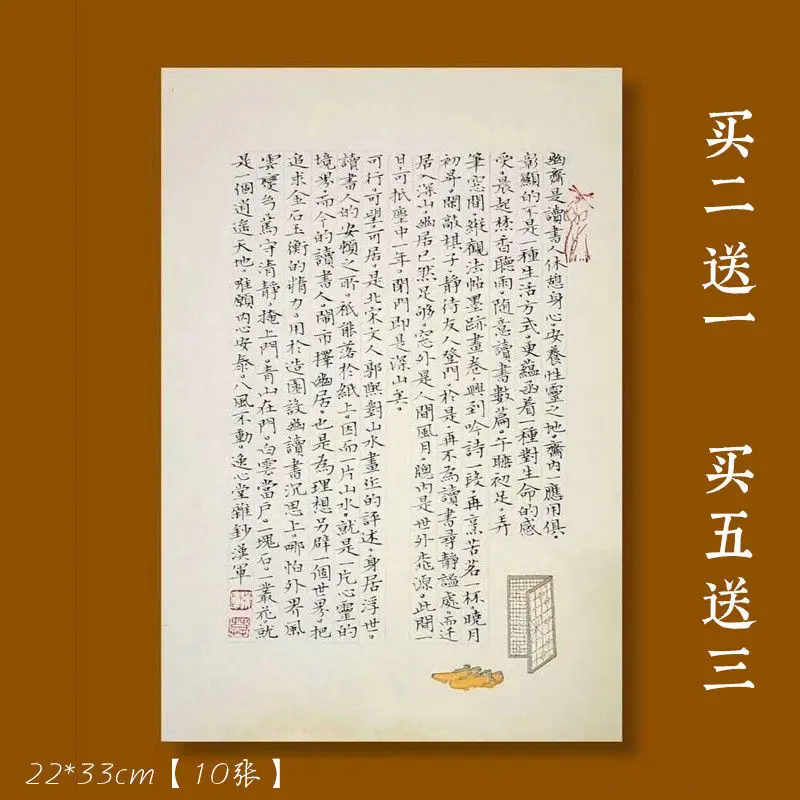 幽齋是讀書人休憩身心、安養性靈之地。齋內一應用俱。
彰顯的不是一種生活方式。更蘊函着一種對生命的感
受。晨起焚香聽雨。隨意讀書數篇。午聽初足。弄
筆窓間。縱觀法帖墨跡畫卷。興到吟詩一段。再烹苦茗一杯。曉月
初昇。閑敲棋子。靜待友人登門。於是。再不為讀書尋靜謐處。而迁
居入深山。幽居已然足够。窓外是人間風月。牕內是世外桃源。此間一
日。可抵塵中一年。閉門即是深山矣。
可行。可望。可居。是北宋文人郭熙對山水畫近的評述。身居浮世。
讀書人的安頓之所。祇能落於紙上。因而一片山水。就是一片心靈的
境界。而今的讀書人。鬧市擇幽居。也是為理想另辟一個世界。把
追求金石玉衡的精力。用於造園設幽讀書沉思上。哪怕外界風
雲變㓜。萬宇清靜。掩上門。青山在門。白雲當戶。一塊石。一叢花。就
是一個逍遙天地。唯願內心安泰。八風不動。逸心堂雜鈔漢軍
买二送一
买五送三
22*33cm【10张】